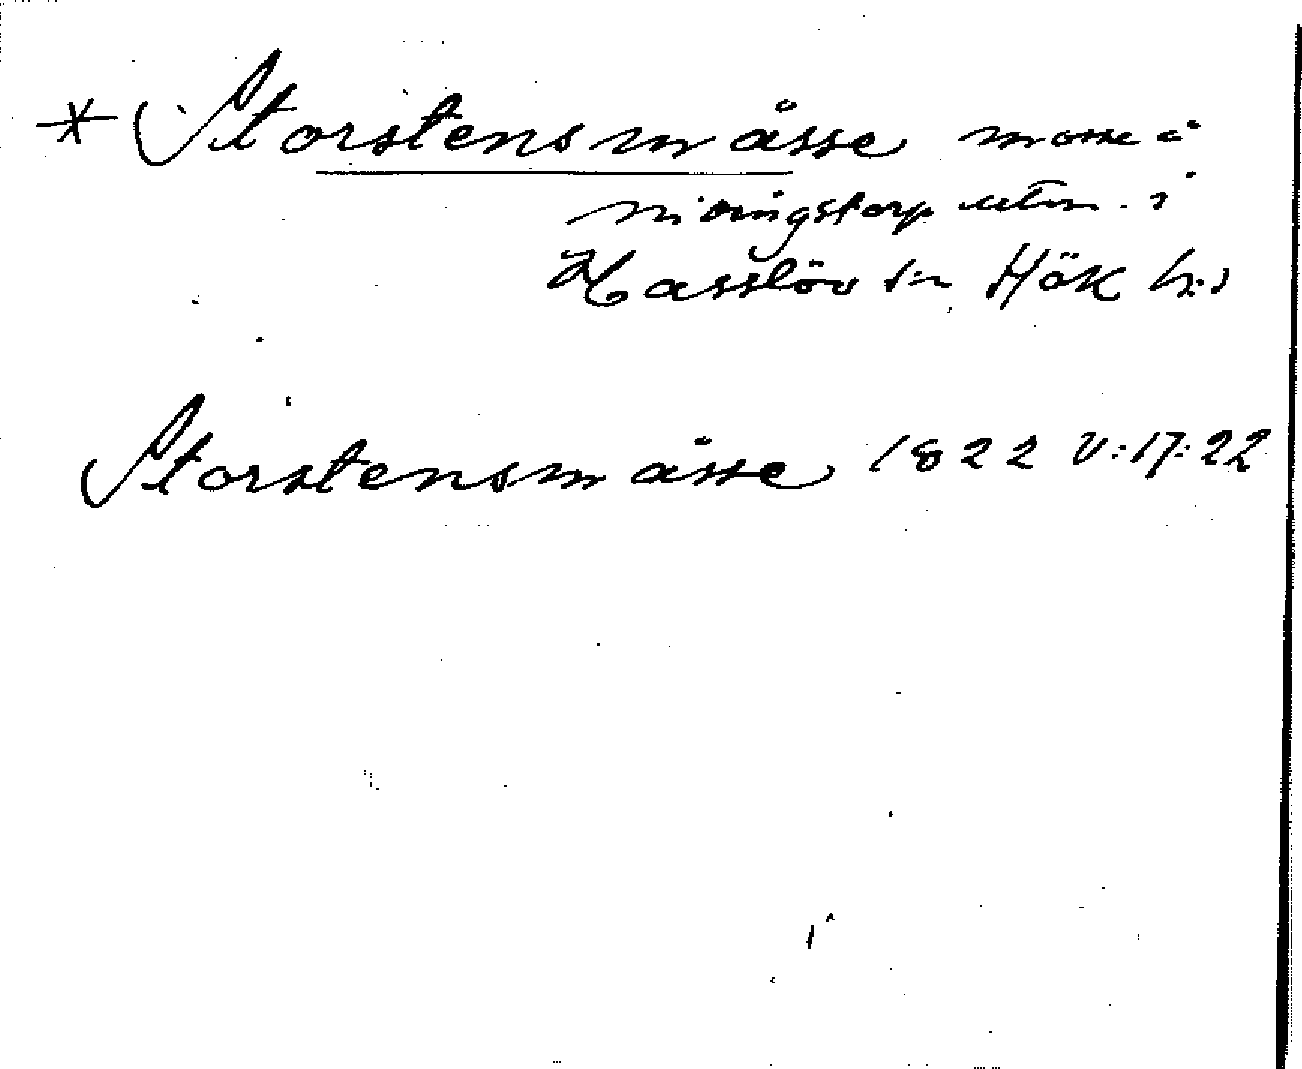 * Storstensmåsse mosse å
Vindingstorp utm. i
Hasslöv sn Hök hd
Storstensmåsse 1822 V:17:22